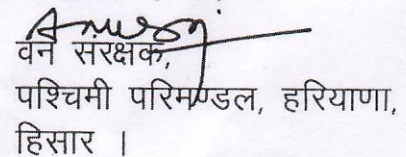 वन संरक्षक,
पश्चिमी परिमण्डल, हरियाणा,
हिसार ।